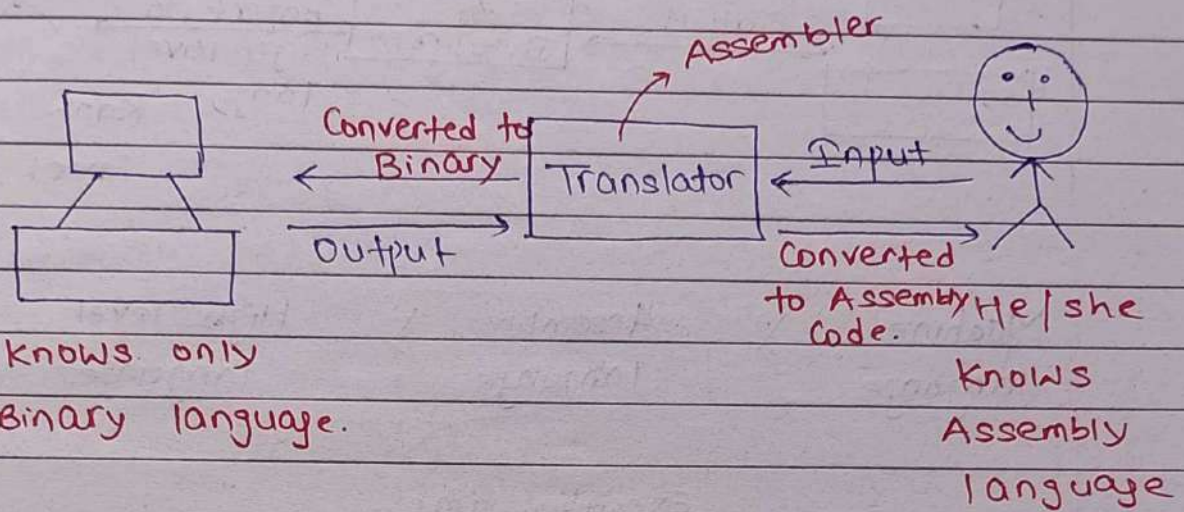 Assembler
Converted to
Binary
Translator
Input
Output
Converted
to Assembly
Code.
Knows only
Binary language.
He/she
Knows
Assembly
language